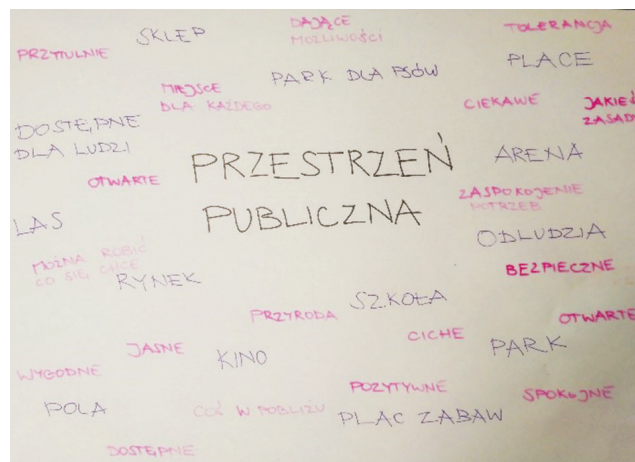 SKLEP
DAJĄCE
MOŻLIWOŚCI
TOLERANCJA
PRZYTULNIE
PLACE
MIEJSCE
DLA KAŻDEGO
PARK DLA PSÓW
CIEKAWE
JAKIEŚ
ZASADY
DOSTĘPNE
DLA LUDZI
PRZESTRZEŃ
PUBLICZNA
ARENA
OTWARTE
ZASPOKOJENIE
POTRZEB
LAS
ODLUDZIA
MOŻNA ROBIĆ
CO SIĘ CHCE
RYNEK
BEZPIECZNE
SZKOŁA
PRZYRODA
OTWARTE
CICHE
PARK
JASNE
KINO
WYGODNE
POZYTYWNE
SPOKOJNE
POLA
COŚ W POBLIŻU
PLAC ZABAW
DOSTĘPNE